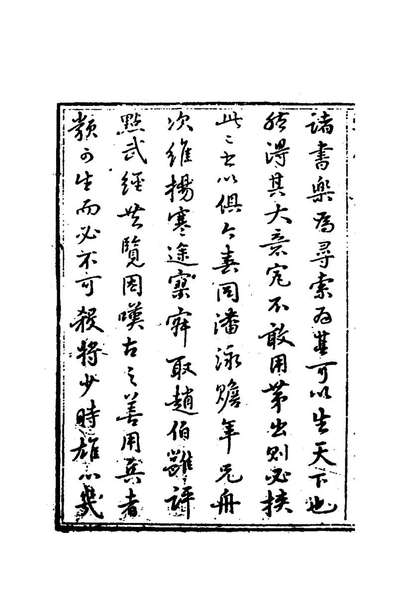 諸書樂為尋索為其可以生天下也
然得其大意究不敢用第出則必挾
此二書以俱今春同潘泳贍年兄舟
次維揚寒途寥寂取趙伯雖評
點武經共覽因嘆古之善用兵者
類可生而必不可殺將少時雄心幾